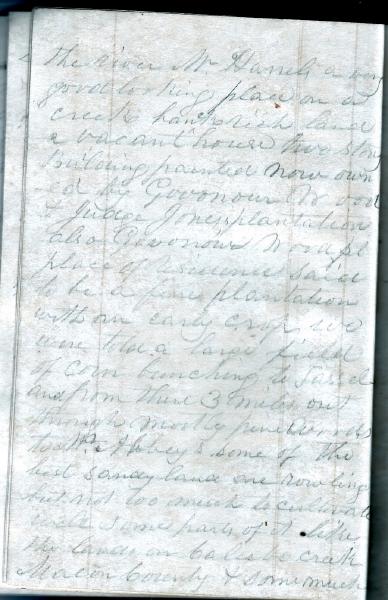 the River Mr Harrels a very
good looking place on a
creek bank rich land
a vacant house two story
building painted now own
ed by Govonour Wood
& Judge Jones plantation
also Govonour Woods pl
place of residence said
to be a fine plantation
with an early crop we
were told a large field
of corn bunching to Tassel
and from there 3 miles out
through mostly pine woods
to Mr Abbey's some of the
best sandy land one row ling
but not too much to cultivate
well some parts of it like
the lands on creek
Macon County & some much